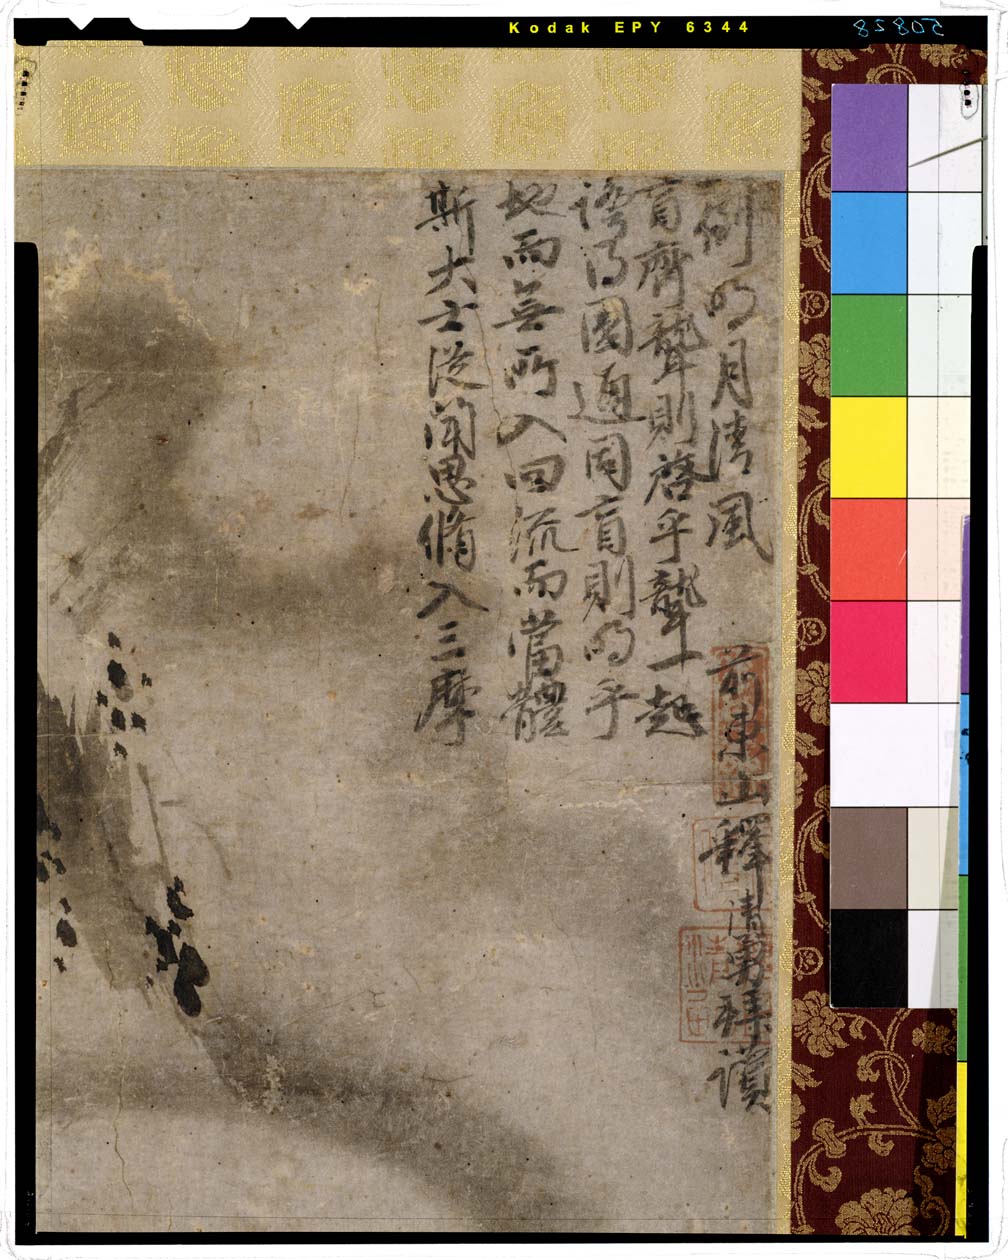 Kodak EPY 6344
斯大士從聞思脩入三摩
地而無所入回流而當體
證得圓通同盲則明乎
盲齊聾則啓乎聾一
一例明月清風
前東山釋清勇拜讃